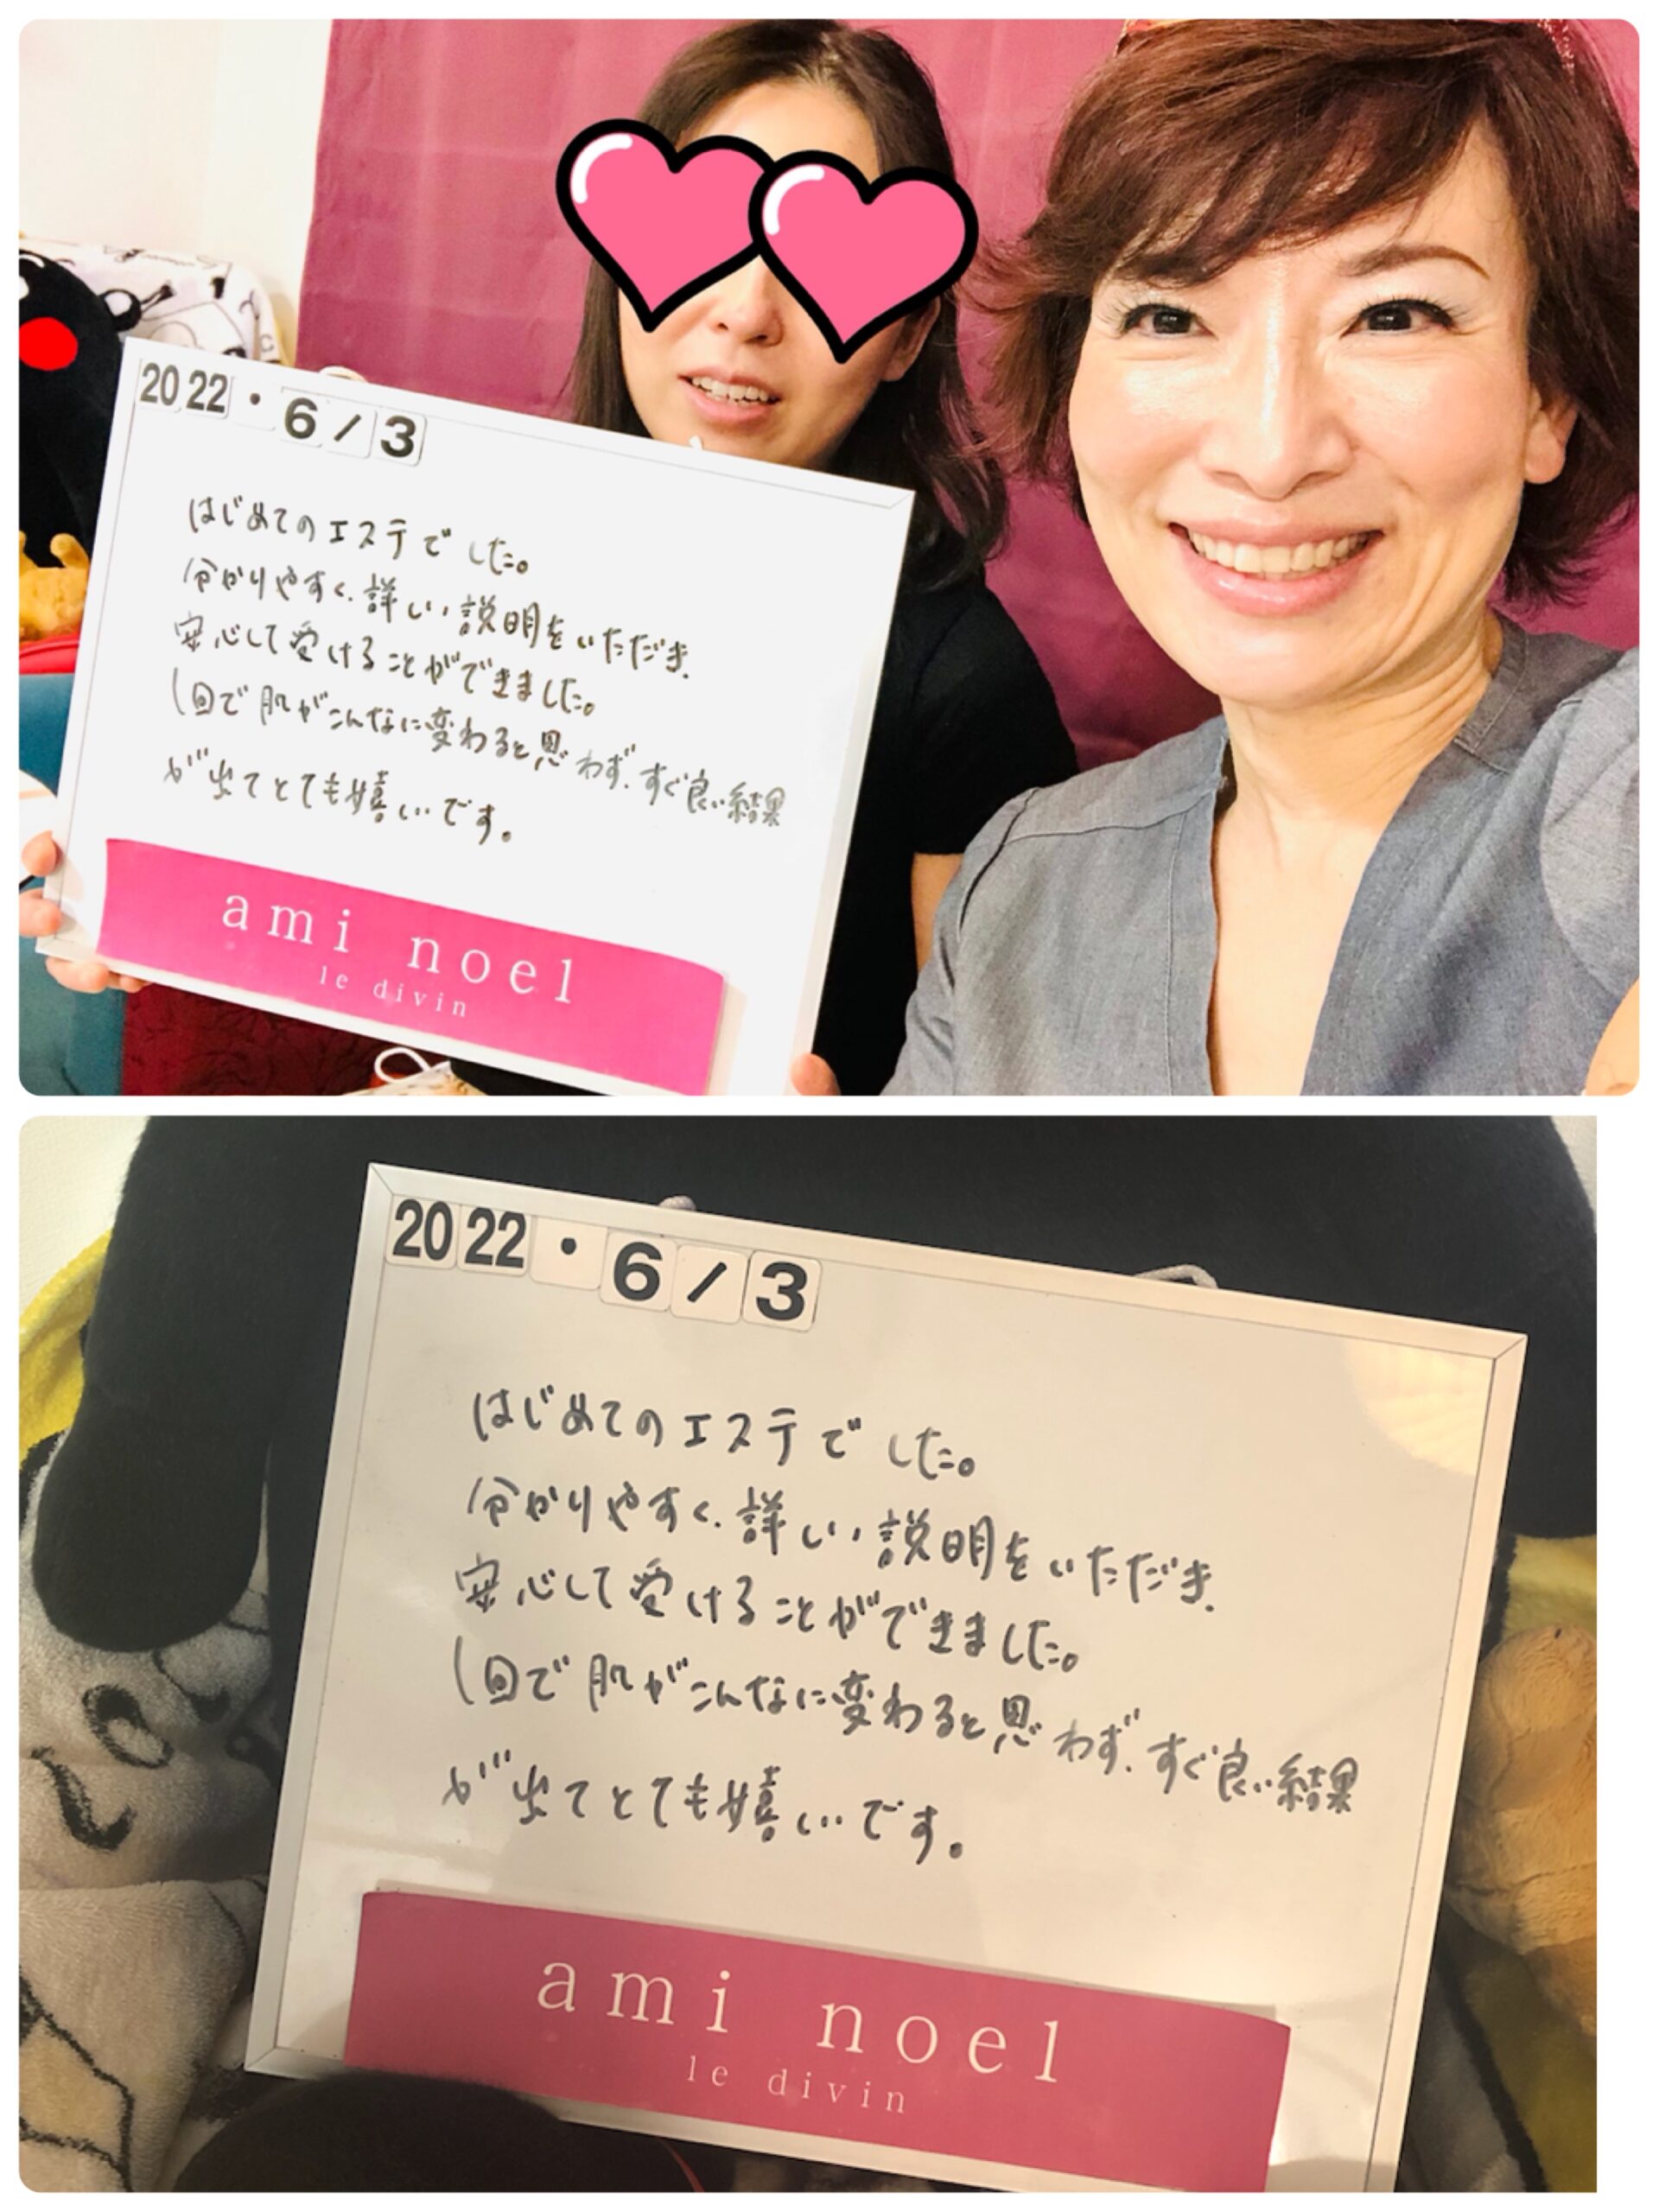 2022・6/3
はじめてのエステでした。
分かりやすく、詳しい説明をいただき、
安心して受けることができました。
1回で肌がこんなに変わると思わず、すぐ良い結果
が出てとても嬉しいです。
ami noel
le divin
2022・6/3
はじめてのエステでした。
分かりやすく、詳しい説明をいただき、
安心して受けることができました。
1回で肌がこんなに変わると思わず、すぐ良い結果
が出てとても嬉しいです。
ami noel
le divin